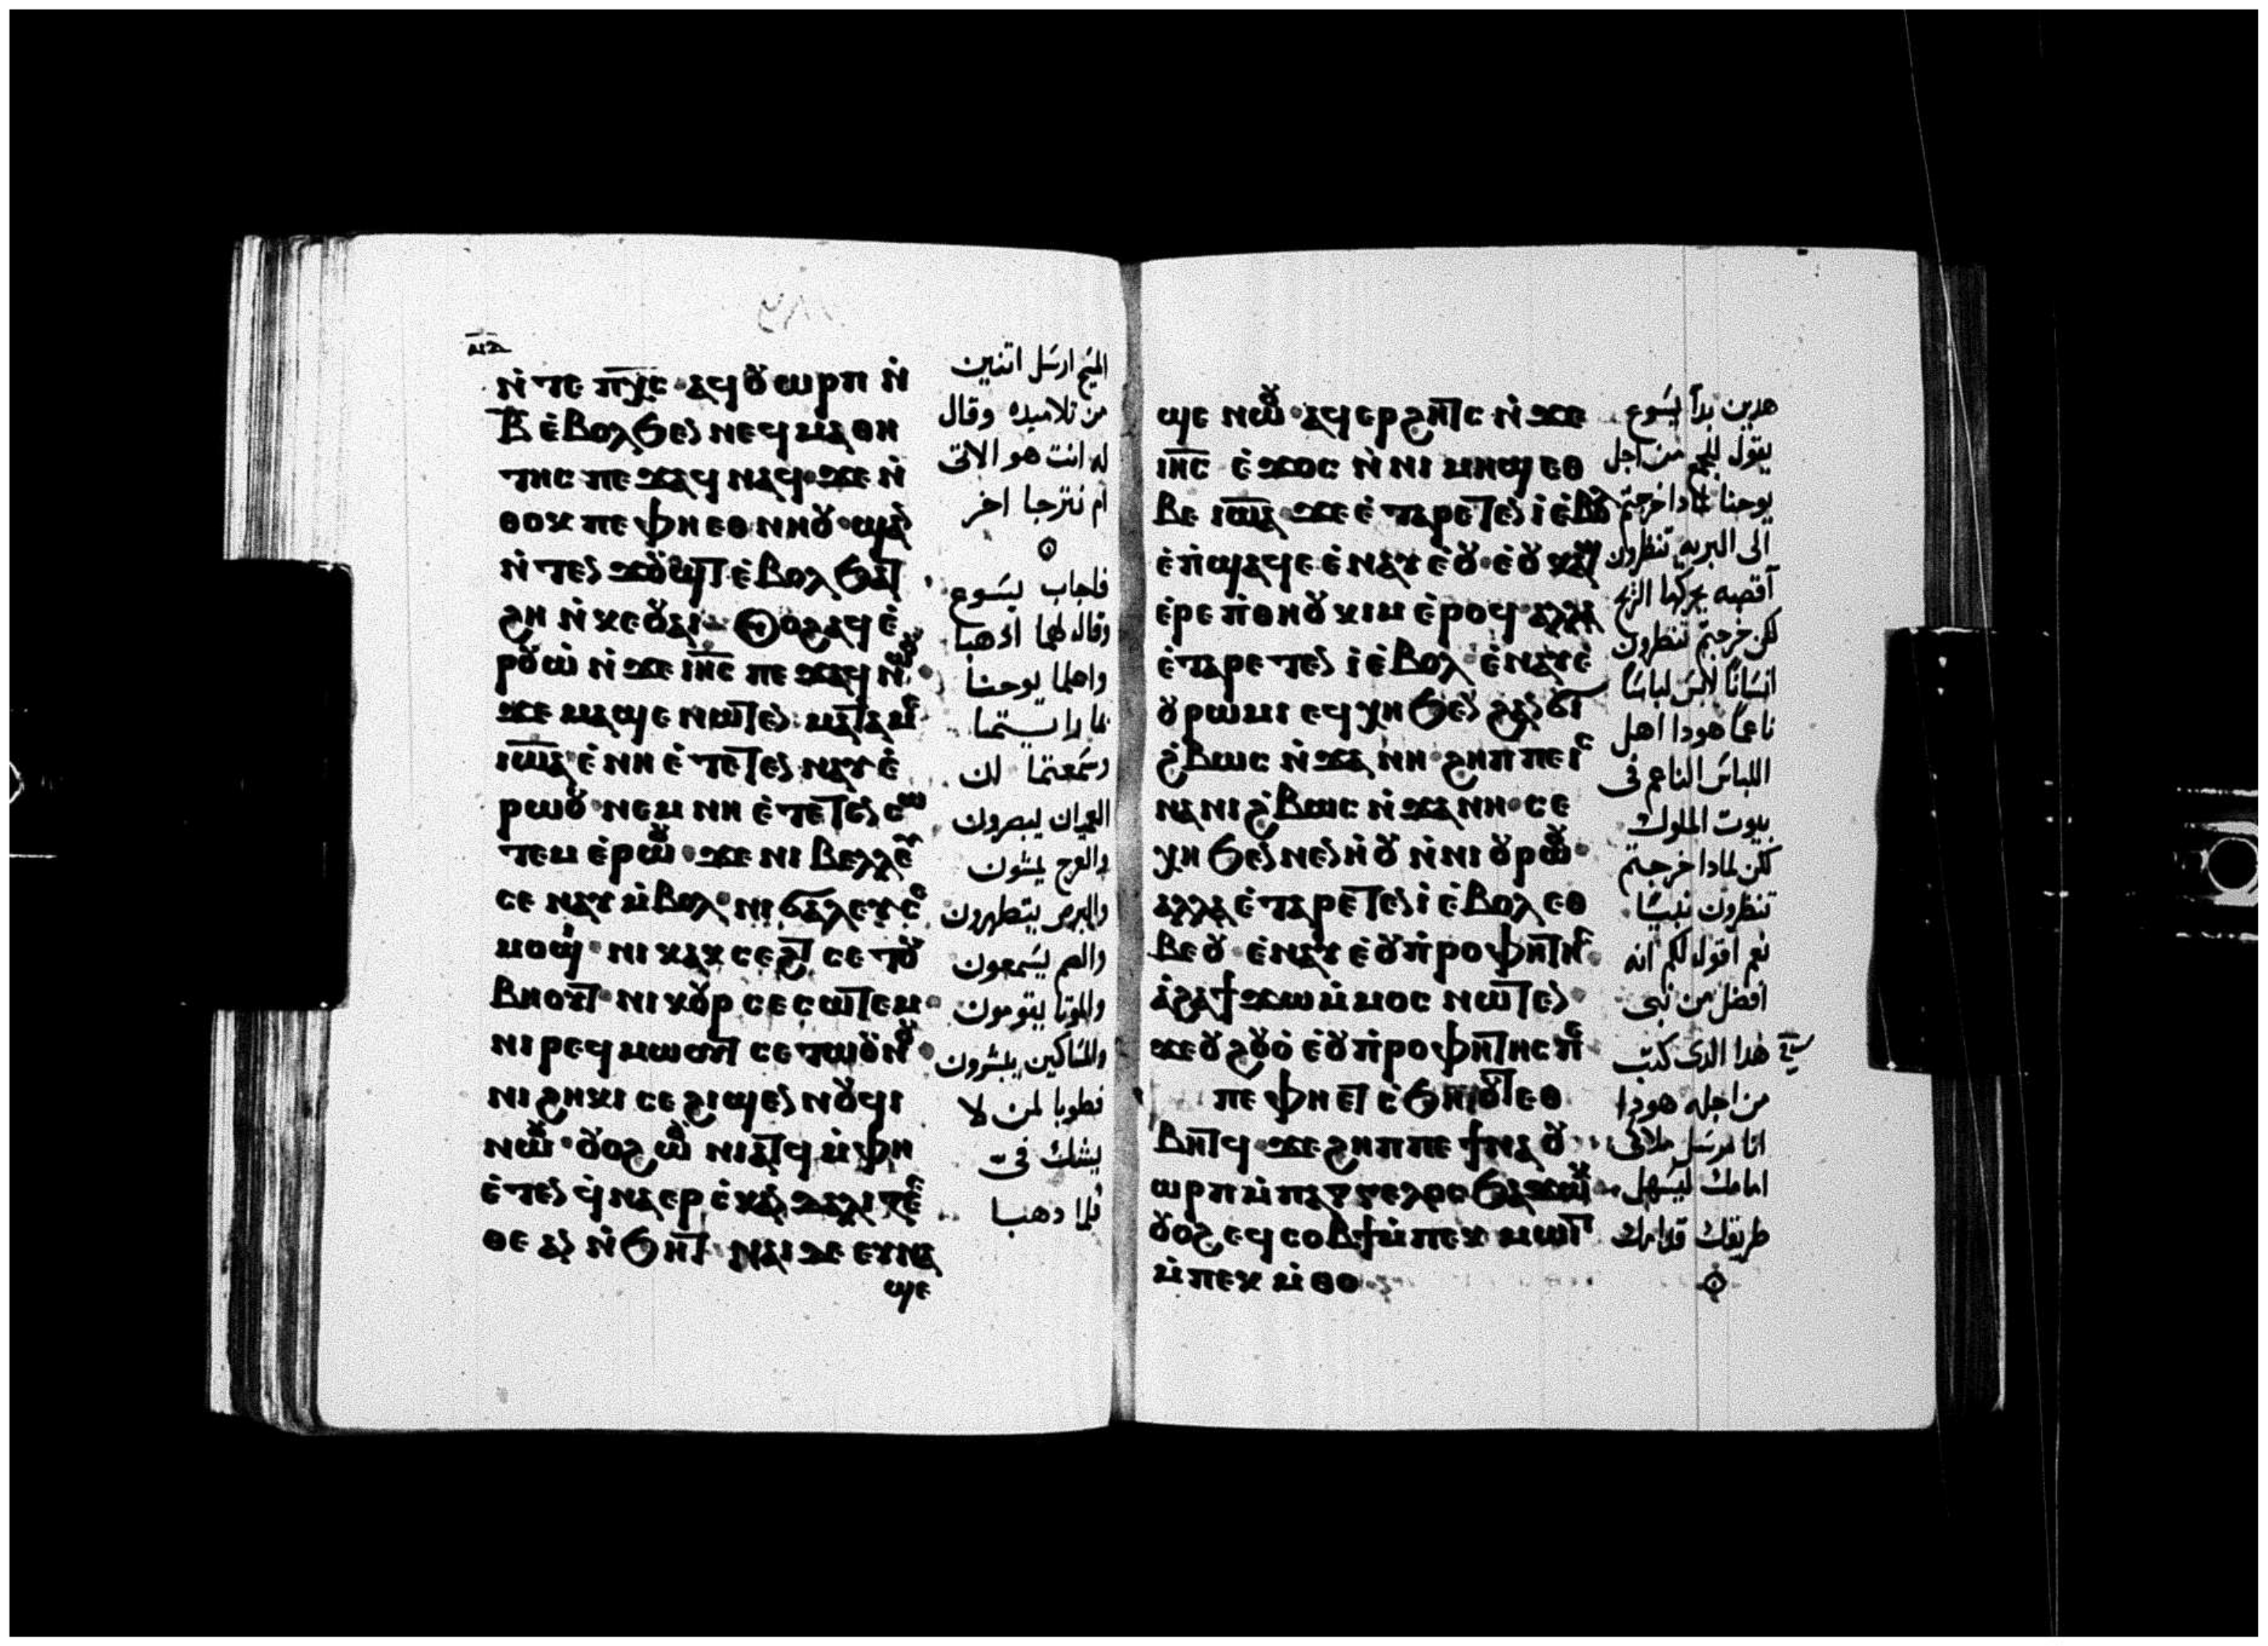 ⲙ̅ⲇ̅
ⲛ̇ⲧⲉ ⲡ̅ⲭ̅ⲥ̅ ⲁϥⲟⲩⲱⲣⲡ ⲛ̇
ⲃ̅ ⲉ̇ⲃⲟⲗϧⲉⲛ ⲛⲉϥⲙⲁⲑⲏ
ⲧⲏⲥ ⲡⲉϫⲁϥ ⲛⲁϥ ϫⲉ ⲛ̇
ⲑⲟⲕ ⲡⲉ ⲫⲏ ⲉⲑⲛⲏⲟⲩ ϣⲁ
ⲛ̇ⲧⲉⲛϫⲟⲩϣⲧ ⲉ̇ⲃⲟⲗϧⲁⲧ
ϩⲏ ⲛ̇ⲕⲉⲟⲩⲁⲓ ⲟⲩⲟϩ ⲁϥⲉ̇
ⲣⲟⲩⲱ̇ ⲛ̇ϫⲉ ⲓⲏ̅ⲥ̅ ⲡⲉϫⲁϥ ⲛⲱⲟⲩ
ϫⲉ ⲙⲁϣⲉ ⲛⲱⲧⲉⲛ ⲙⲁⲧⲁⲙⲉ
ⲓⲱ̅ⲁ̅ ⲉ̇ⲛⲏ ⲉ̇ⲧⲉⲧⲉⲛⲛⲁⲩ ⲉ̇
ⲣⲱⲟⲩ ⲛⲉⲙ ⲛⲏ ⲉ̇ⲧⲉⲧⲉⲛⲥⲱ
ⲧⲉⲙ ⲉ̇ⲣⲱⲟⲩ ϫⲉ ⲛⲓⲃⲉⲗⲗⲉⲩ
ⲥⲉⲛⲁⲩ ⲙ̇ⲃⲟⲗ ⲛⲓϭⲁⲗⲉⲩ ⲥⲉ
ⲙⲟϣⲓ ⲛⲓⲕⲁⲕⲥⲉϩⲧ ⲥⲉⲧⲟⲩ
ⲃⲏⲟⲩⲧ ⲛⲓⲕⲟⲩⲣ ⲥⲉⲥⲱⲧⲉⲙ
ⲛⲓⲣⲉϥⲙⲱⲟⲩⲧ ⲥⲉⲧⲱⲟⲩⲛⲟⲩ
ⲛⲓϩⲏⲕⲓ ⲥⲉϩⲓϣⲉⲛⲛⲟⲩϥⲓ
ⲛⲱⲟⲩ ⲟⲩⲟϩ ⲱⲟⲩ ⲛⲓⲁⲧϥ ⲙ̇ⲫⲏ
ⲉ̇ⲧⲉⲛϥ̇ⲛⲁⲉⲣⲥ̇ⲕⲁⲛⲇⲁⲗⲓⲍⲉⲥ
ⲑⲉ ⲁⲛ ⲛ̇ϧⲏⲧ ⲛⲁⲓ ⲇⲉ ⲉⲩⲛⲁ
ϣⲉ
المسيح ارسل اتنين
من تلاميده وقال
له انت هو الاتى
ام نترجا اخر
فاجاب يسوع
وقال لهما ادهبا
واعلما يوحنا
بما رايتما
وسمعتما ان
العميان يبصرون
والعرج يمشون
والبرص يتطهرون
والصم يسمعون
والموتا يقومون
والمساكين يبشرون
فطوبا لمن لا
يشك فى
فلما دهبا
ϣⲉ ⲛⲱⲟⲩ ⲁϥⲉⲣϩⲏⲧⲥ ⲛ̇ϫⲉ
ⲓⲏ̅ⲥ̅ ⲉ̇ϫⲟⲥ ⲛ̇ⲛⲓⲙⲏϣ ⲉⲑ
ⲃⲉ ⲓⲱ̅ⲁ̅ ϫⲉ ⲉ̇ⲧⲁⲣⲉⲧⲉⲛⲓ̇ ⲉ̇ⲃⲟⲗ
ⲉ̇ⲡ̇ϣⲁϥⲉ ⲉ̇ⲛⲁⲩ ⲉ̇ⲟⲩ ⲉ̇ⲟⲩⲕⲁϣ
ⲉ̇ⲣⲉ ⲡ̇ⲑⲏⲟⲩ ⲕⲓⲙ ⲉ̇ⲣⲟϥ ⲁⲗⲗⲁ
ⲉ̇ⲧⲁⲣⲉⲧⲉⲛⲓ̇ ⲉ̇ⲃⲟⲗ ⲉ̇ⲛⲁⲩ ⲉ̇
ⲟⲩⲣⲱⲙⲓ ⲉϥⲭⲏ ϧⲉⲛ ϩⲁⲛ
ϩ̇ⲃⲱⲥ ⲛ̇ϫⲏⲛ ϩⲏⲡⲡⲉ ⲓⲥ
ⲛⲁⲛⲓϩ̇ⲃⲱⲥ ⲛ̇ϫⲁⲛⲏ ⲥⲉ
ⲭⲏ ϧⲉⲛ ⲛⲉⲛⲏⲟⲩ ⲛ̇ⲛⲓⲟⲩⲣⲱⲟⲩ
ⲁⲗⲗⲁ ⲉ̇ⲧⲁⲣⲉⲧⲉⲛⲓ̇ ⲉ̇ⲃⲟⲗ ⲉⲑ
ⲃⲉⲟⲩ ⲉ̇ⲛⲁⲩ ⲉ̇ⲟⲩⲡ̇ⲣⲟⲫⲏⲧⲏⲥ
ⲁ̇ϩⲁ ϯϫⲱ ⲙ̇ⲙⲟⲥ ⲛⲱⲧⲉⲛ
ϫⲉ ⲟⲩϩⲟⲩⲟ̇ ⲉ̇ⲟⲩⲡ̇ⲣⲟⲫⲏⲧⲏⲥ
ⲡⲉ ⲫⲏ ⲉⲧⲥ̇ϧⲏⲟⲩⲧ ⲉⲑ
ⲃⲏⲧϥ ϫⲉ ϩⲏⲡⲡⲉ ϯⲛⲁⲟⲩ
ⲱⲣⲡ ⲙ̇ⲡⲁⲁⲅⲅⲉⲗⲟⲥ ϧⲁϫⲱⲕ
ⲟⲩⲟϩ ⲉϥⲥⲟⲃϯ ⲙ̇ⲡⲉⲕⲙⲱⲓⲧ
ⲙ̇ⲡⲉⲕⲙ̇ⲑⲟ
هدين بدأ يسوع
يقول للجمع من اجل
يوحنا لمادا خرجتم
الى البريه تنظرون
أقصبه يحركها الريح
لكن خرجتم تنظرون
انسانًا لابس لباسًا
ناعمًا هودا اهل
اللباس الناعم فى
بيوت الملوك
لكن لمادا خرجتم
تنظرون نبيًا
نعم اقول لكم انه
افضل من نبى
هدا الدى كتب
من اجله هودا
انا مرسل ملاكى
امامك ليسهل
طريقك قدامك